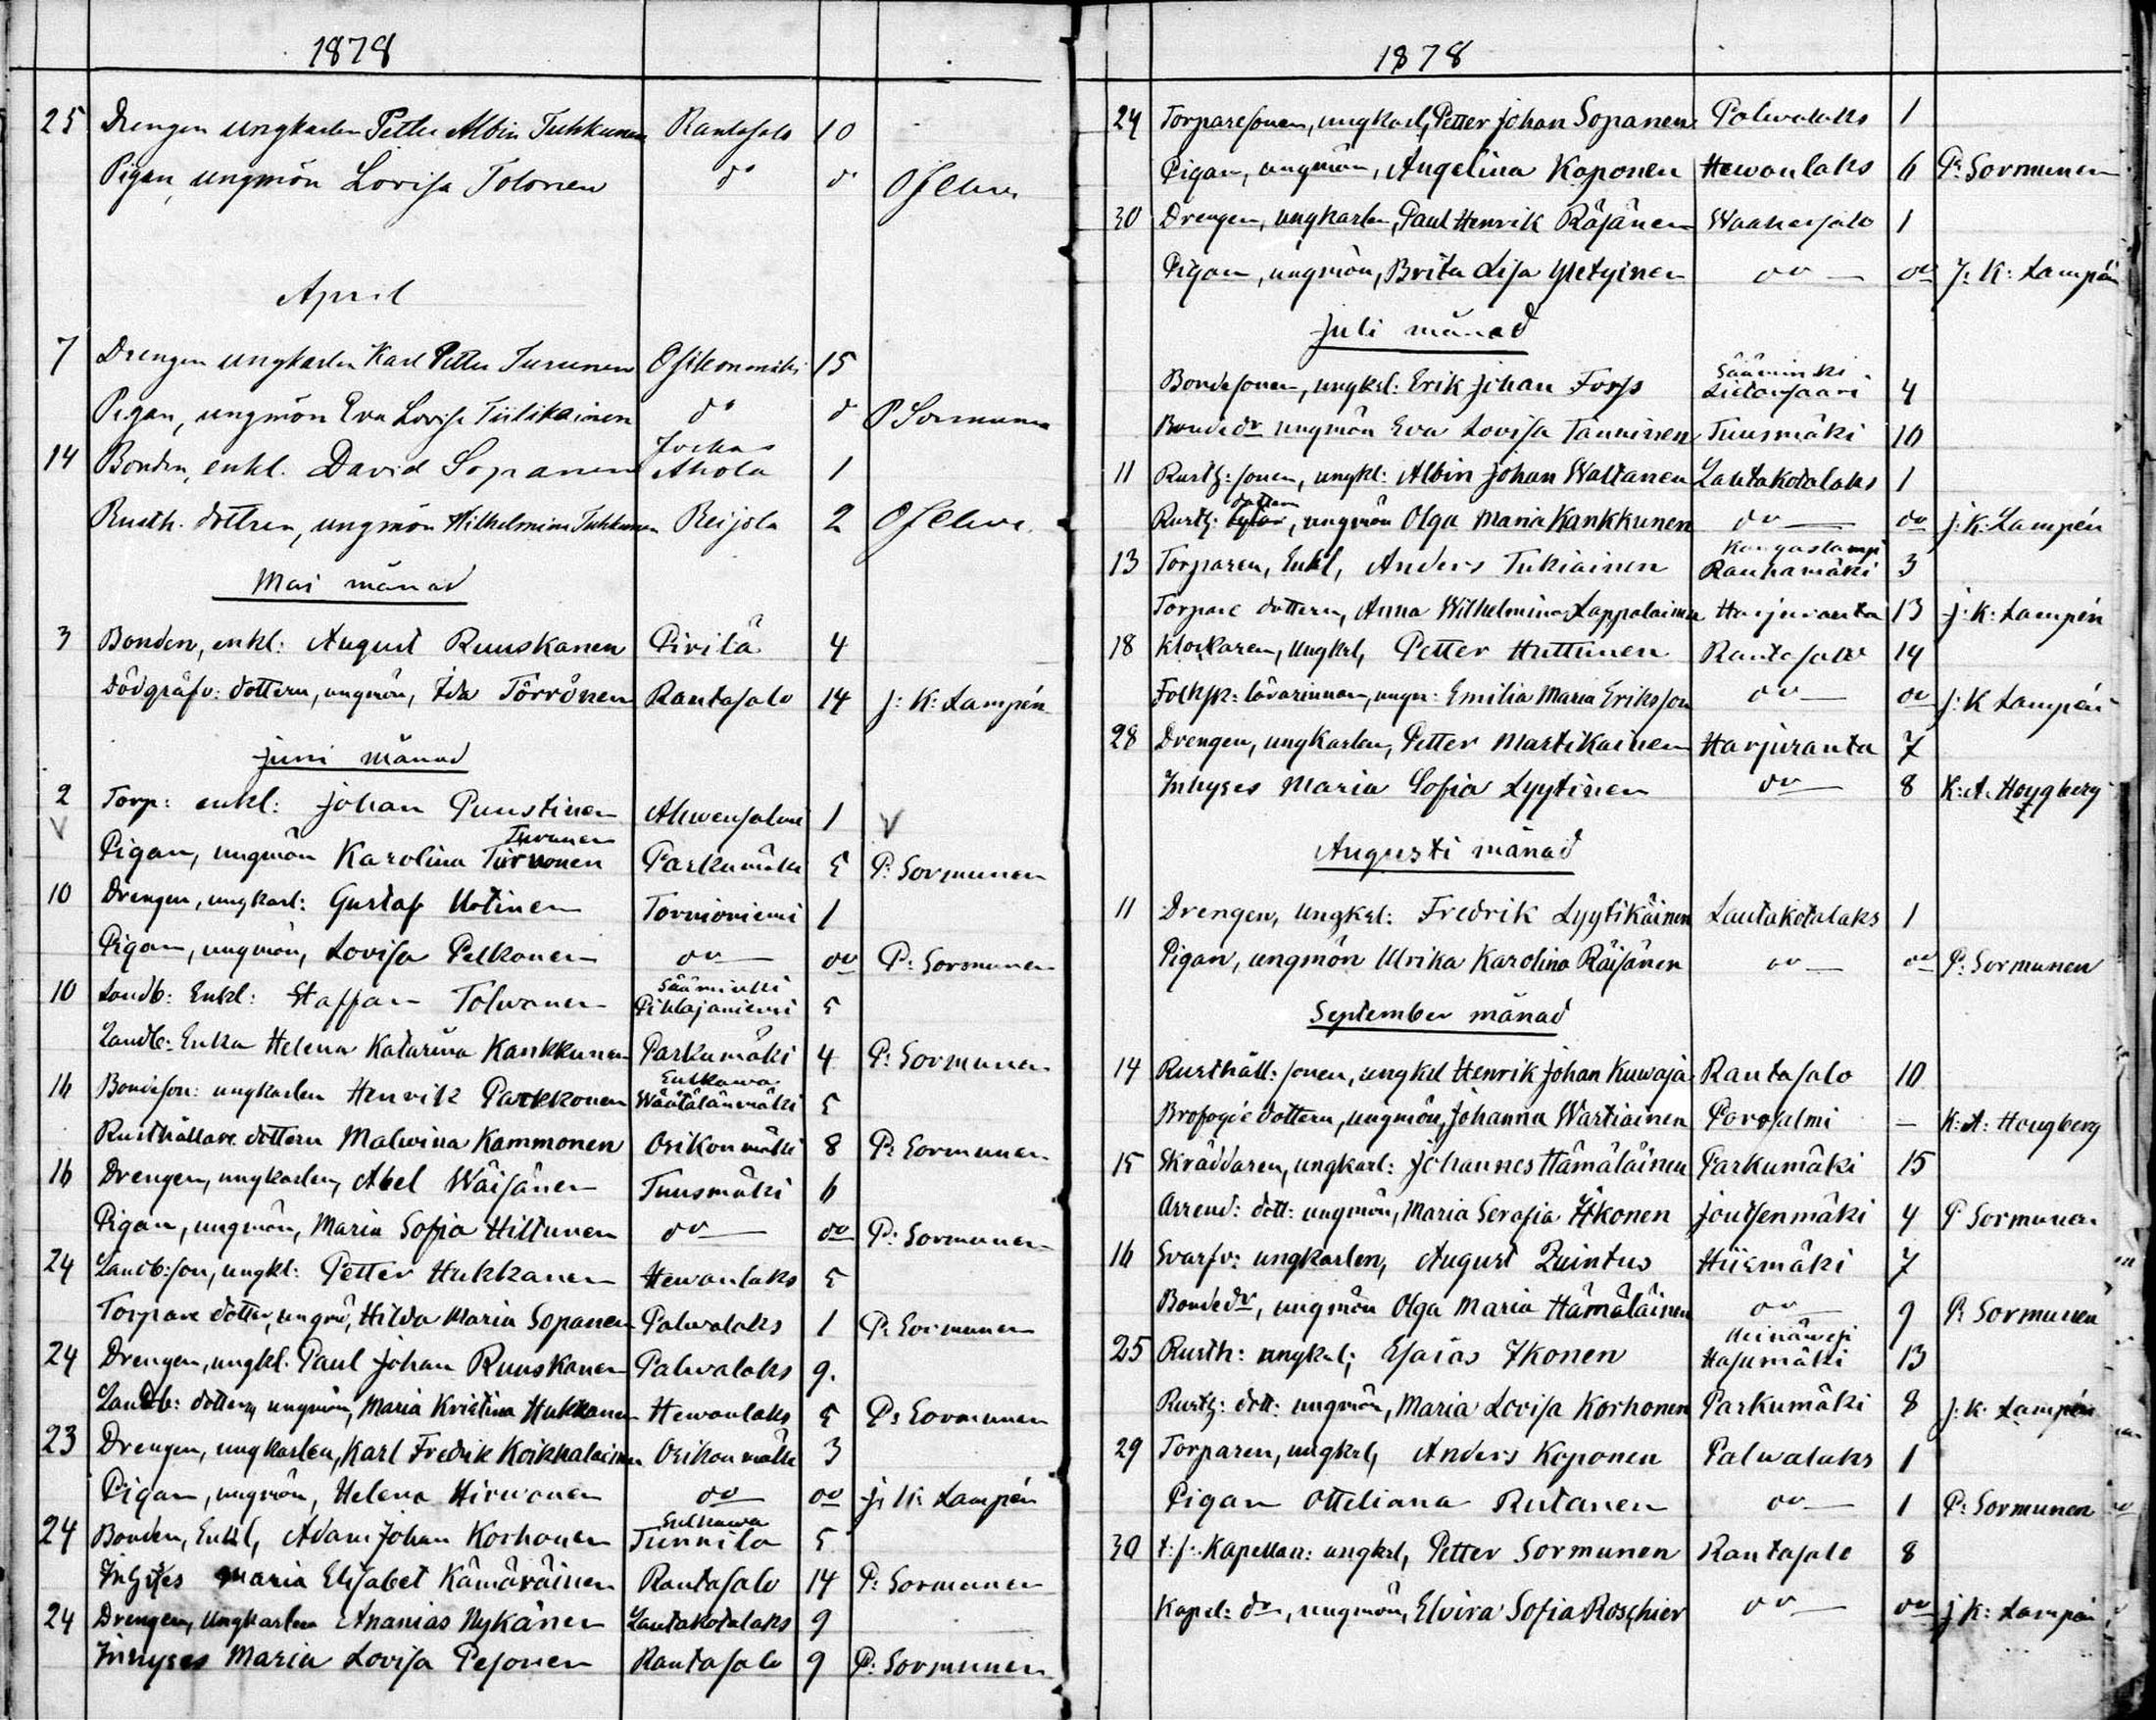 1878
25 Drengen ungkarlen Petter Albin Tuhkunen Rantasalo 10
Pigan, ungmön Lovisa Tolonen do do
April
7 Drengen ungkarlen Karl Petter Turunen Osikonmäki 15
Pigan, ungmön Eva Lovisa Tiilikainen do do P Sormunen
Jockas
14 Bonden, enkl. David Sopanen Ahola 1
Rusth. dottren, ungmön Wilhelmina Tuhkunen Reijola 2
Maj månad
3 Bonden, enkl: August Ruuskanen Pirilä 4
Dödgräfv: dottern, ungmön, Ida Törrönen Rantasalo 14 J: K: Lampén
Juni månad
2 Torp: enkl: Johan Puustinen Ahwensalmi 1 V
V
Turunen
Pigan, ungmön Karolina Parkumäki 5 P: Sormunen
10 Drengen, ungkarl: Gustaf Utinen Tornioniemi 1
Pigan, ungmön, Lovisa Pelkonen do do P: Sormunen
Sääminki
10 Landb: Enkl: Staffan Tolwanen Pihlajaniemi 5
Landb: Enka Helena Katarina Kankkunen Parkumäki 4 P: Sormunen
Sulkawa
16 Bondeson: ungkarlen Henrik Parkkonen Wäätälänmäki 5
Rusthållare dottern Malwina Kammonen Osikonmäki 8 P: Sormunen
16 Drengen, ungkarlen, Abel Wäisänen Tuusmäki 6
Pigan, ungmön, Maria Sofia Hiltunen do do P: Sormunen
24 Landb:son, ungkl: Petter Hukkanen Hewonlaks 5
Torpare dotter, ungmö, Hilda Maria Sopanen Palwalaks 1 P: Sormunen
24 Drengen, ungkl. Paul Johan Ruuskanen Palwalaks 9.
Landb: dottern, ungmön, Maria Kristina Hukkanen Hewonlaks 5 P: Sormunen
23 Drengen, ungkarlen, Karl Fredrik Koikkalainen Osikonmäki 3
Pigan, ungmön, Helena Hirwonen do do J: K: Lampén
Sulkawa
24 Bonden, Enkl, Adam Johan Korhonen Tunnila 5
Inhyses Maria Elisabet Kämäräinen Rantasalo 14 P: Sormunen
24 Drengen, Ungkarlen Ananias Nykänen Lautakotalaks 9
Inhyses Maria Lovisa Pesonen Rantasalo 9 P: Sormunen
1878
24 Torparesonen, ungkarl, Petter Johan Sopanen Palwalaks 1
Pigan, ungmön, Angelina Koponen Hewonlaks 6 P: Sormunen
30 Drengen, ungkarlen, Paul Henrik Räsänen Waahersalo 1
Pigan, ungmön, Brita Lisa do do J: K: Lampén
Juli månad
Sääminki
Bondesonen, ungkrl: Erik Johan Forss Lietonsaari 4
Bondedr ungmön Eva Lovisa Tanninen Tuusmäki 10
11 Rusth: sonen, ungkl: Albin Johan Waltanen Lautakotalaks 1
dottern
Rusth: , ungmön Olga Maria Kankkunen do do J: K: Lampén
Kangaslampi
13 Torparen, Enkl, Anders Tukiainen Rauhamäki 3
Torpare dottern, Anna Wilhelmina Lappalainen Harjuranta 13 J: K: Lampén
18 Klockaren, Ungkrl, Petter Huttunen Rantasalo 14
Folksk: lärarinnan, ungm: Emilia Maria Eriksson do do J: K Lampén
28 Drengen, ungkarlen, Petter Martikainen Harjuranta 7
Inhyses Maria Sofia Lyytinen do 8 K: A. Hougberg
Augusti månad
11 Drengen, Ungkrl: Fredrik Lyytikäinen Lautakotalaks 1
Pigan, ungmön Ulrika Karolina Räisänen do do P: Sormunen
September månad
14 Rusthåll: sonen, ungkrl Henrik Johan Kuwaja Rantasalo 10
dottern, ungmön, Johanna Wartiainen Porosalmi – K: A: Hougberg
15 Skräddaren, ungkarl: Johannes Hämäläinen Parkumäki 15
Arrend: dott: ungmön, Maria Serafia Ikonen Joutsenmäki 4 P Sormunen
16 Svarfv: ungkarlen, August Quintus Hiismäki 7
Bondedr, ungmön Olga Maria Hämäläinen do 9 P: Sormunen
Heinäwesi
25 Rusth: ungkrl; Esaias Ikonen Hasumäki 13
Rusth: dott: ungmön, Maria Lovisa Korhonen Parkumäki 8 J: K: Lampén
29 Torparen, ungkrl, Anders Koponen Palwalaks 1
Pigan Otteliana Rutanen do 1 P: Sormunen
30 t: f: Kapellan: ungkrl, Petter Sormunen Rantasalo 8
Kapel: dr, ungmön, Elvira Sofia Roschier do do J: K: Lampén